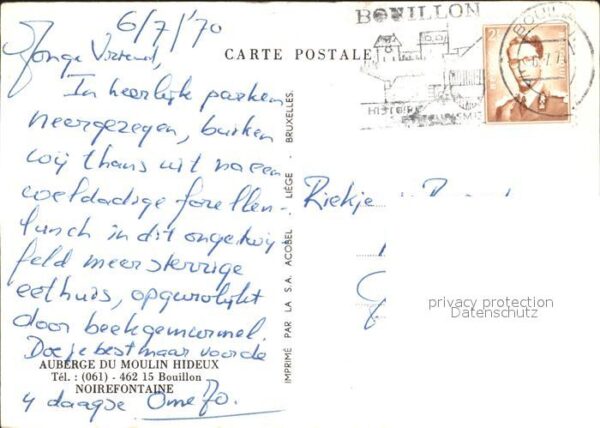 6/7/'70
Jonge Vriend,
In heerlijke parken
neergezegen, buiken
wij thans uit na een
weldadige forellen-
lunch in dit ongetwij
feld meersterrige
eethuis, opgevrolijkt
door beekgemurmel.
Doe je best maar voor de
4 daagse Ome Jo.
AUBERGE DU MOULIN HIDEUX
Tél. : (061) - 462 15 Bouillon
NOIREFONTAINE
CARTE POSTALE
IMPRIMÉ PAR LA S.A. ACOBEL - LIÈGE - BRUXELLES.
BOUILLON
HISTOIRE
Riekje
privacy protection
Datenschutz